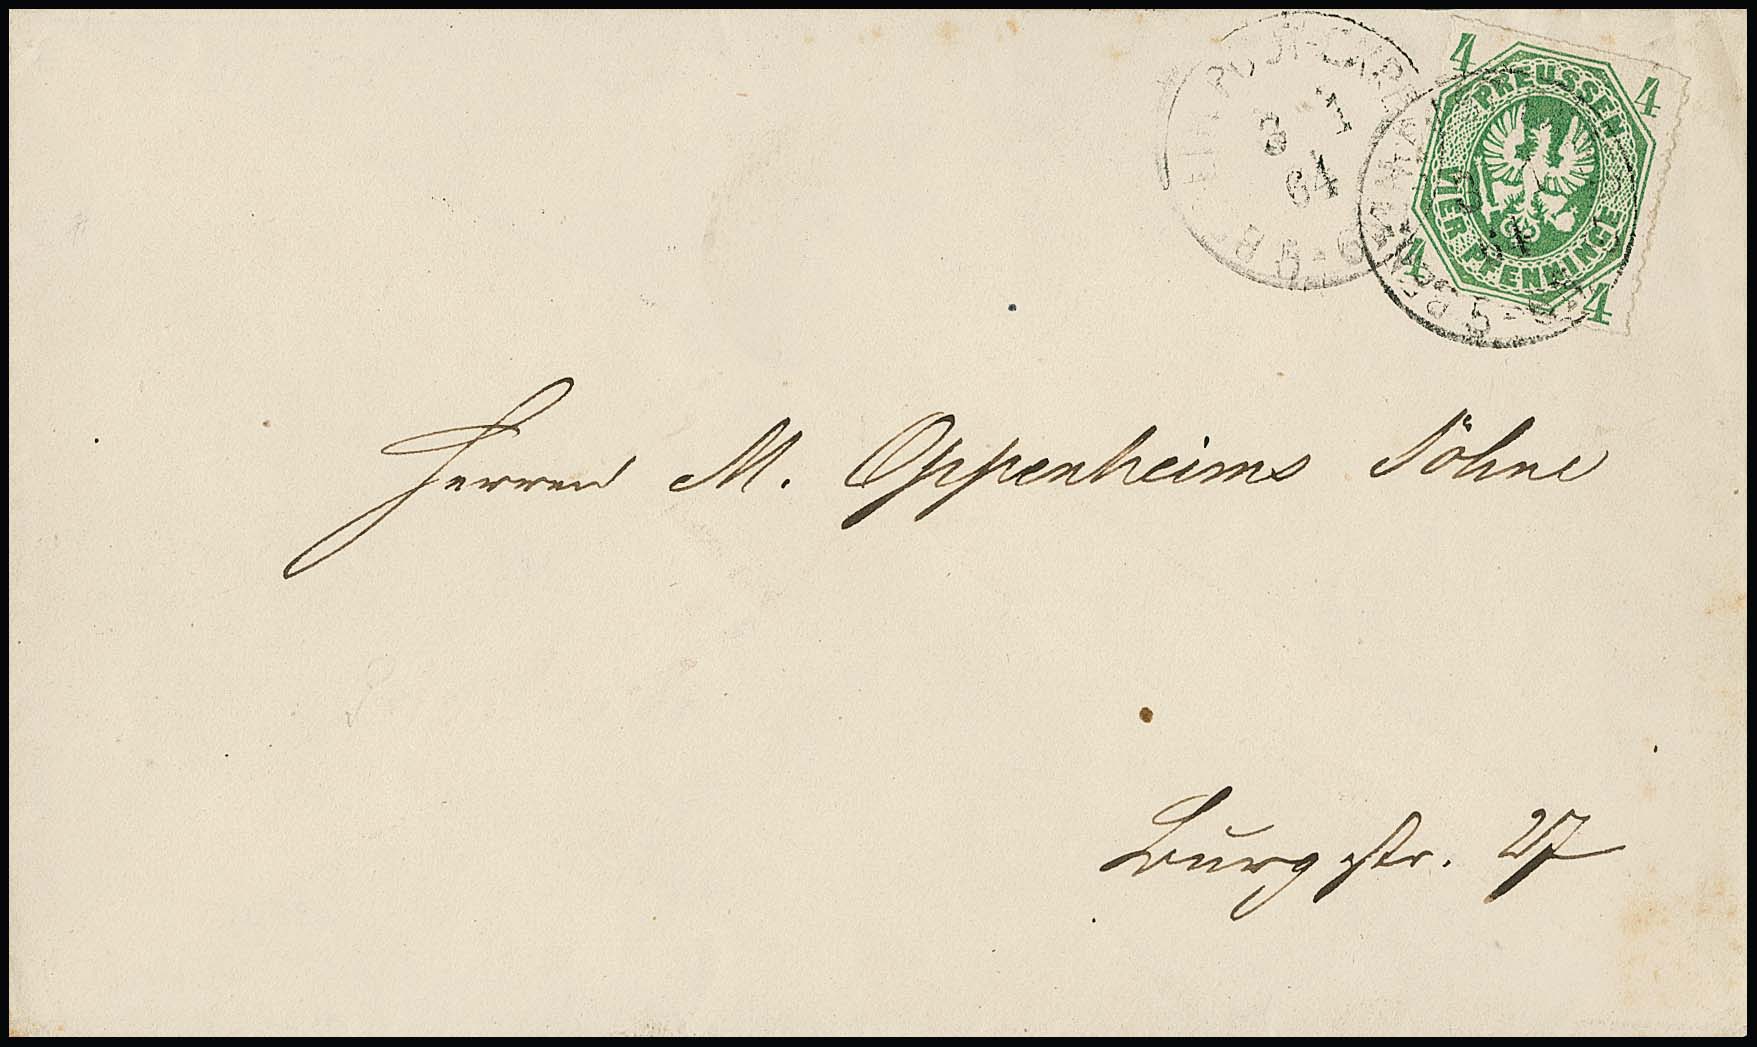 4 4
PREUSSEN
VIER PFENNINGE
4 4
3 1
64
3
Herren M. Oppenheims Söhne
Burgstr. 27